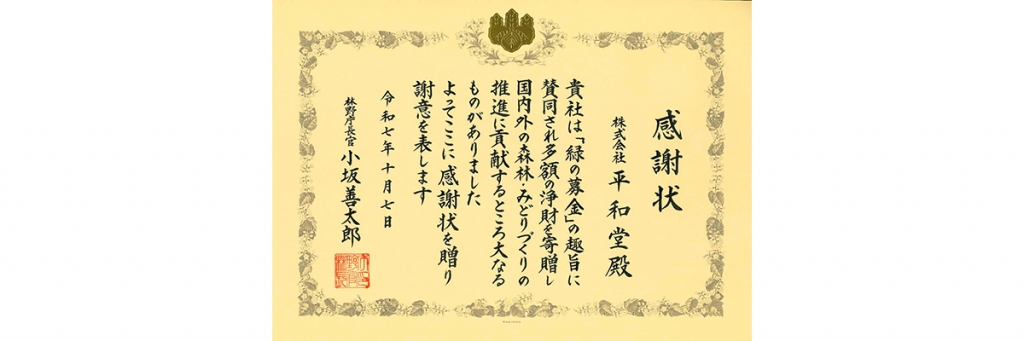 感謝状
株式会社 平和堂殿
貴社は「緑の募金」の趣旨に
賛同され多額の浄財を寄贈し
国内外の森林・みどりづくりの
推進に貢献するところ大なる
ものがありました
よってここに感謝状を贈り
謝意を表します
令和七年十月七日
林野庁長官 小坂善太郎